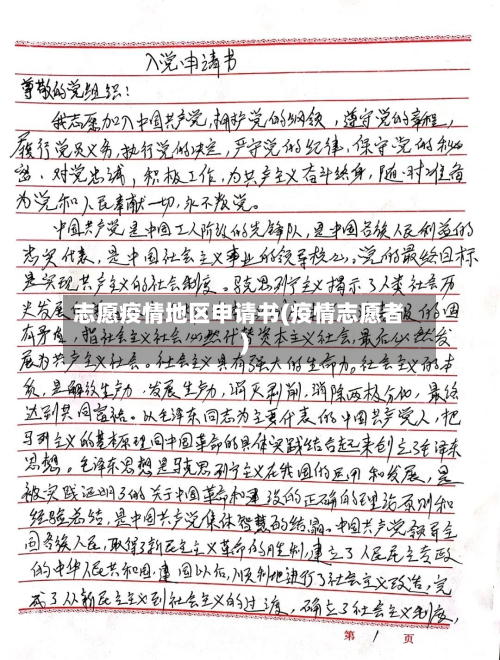 入党申请书
尊敬的党组织:
我志愿加入中国共产党,拥护党的纲领,遵守党的章程,
履行党员义务,执行党的决定,严守党的纪律,保守党的秘
密,对党忠诚,积极工作,为共产主义奋斗终身,随时准备
为党和人民牺牲一切,永不叛党。
中国共产党是中国工人阶级的先锋队,是中国各族人民利益的
忠实代表,是中国社会主义事业的领导核心,党的最终目标
是实现共产主义的社会制度。马克思列宁主义揭示了人类社会历
史发展
志愿疫情地区申请书(疫情志愿者
)
有矛盾,指出社会主义社会必然代替资本主义社会,最后必然发
展为共产主义社会。社会主义具有强大的生命力。社会主义的本
质,是解放生产力,发展生产力,消灭剥削,消除两极分化,最终
达到共同富裕。以毛泽东同志为主要代表的中国共产党人,把
马列主义的基本原理同中国革命的具体实践结合起来创立了毛泽东
思想。毛泽东思想是马克思列宁主义在我国的运用和发展,是
被实践证明了的关于中国革命和建设的正确的理论原则和
经验总结,是中国共产党集体智慧的结晶。中国共产党领导全
国各族人民,取得了新民主主义革命的胜利,建立了人民民主专政
的中华人民共和国,建国以后,顺利地进行了社会主义改造,完
成了从新民主主义到社会主义的过渡,确立了社会主义制度,
第 1 页